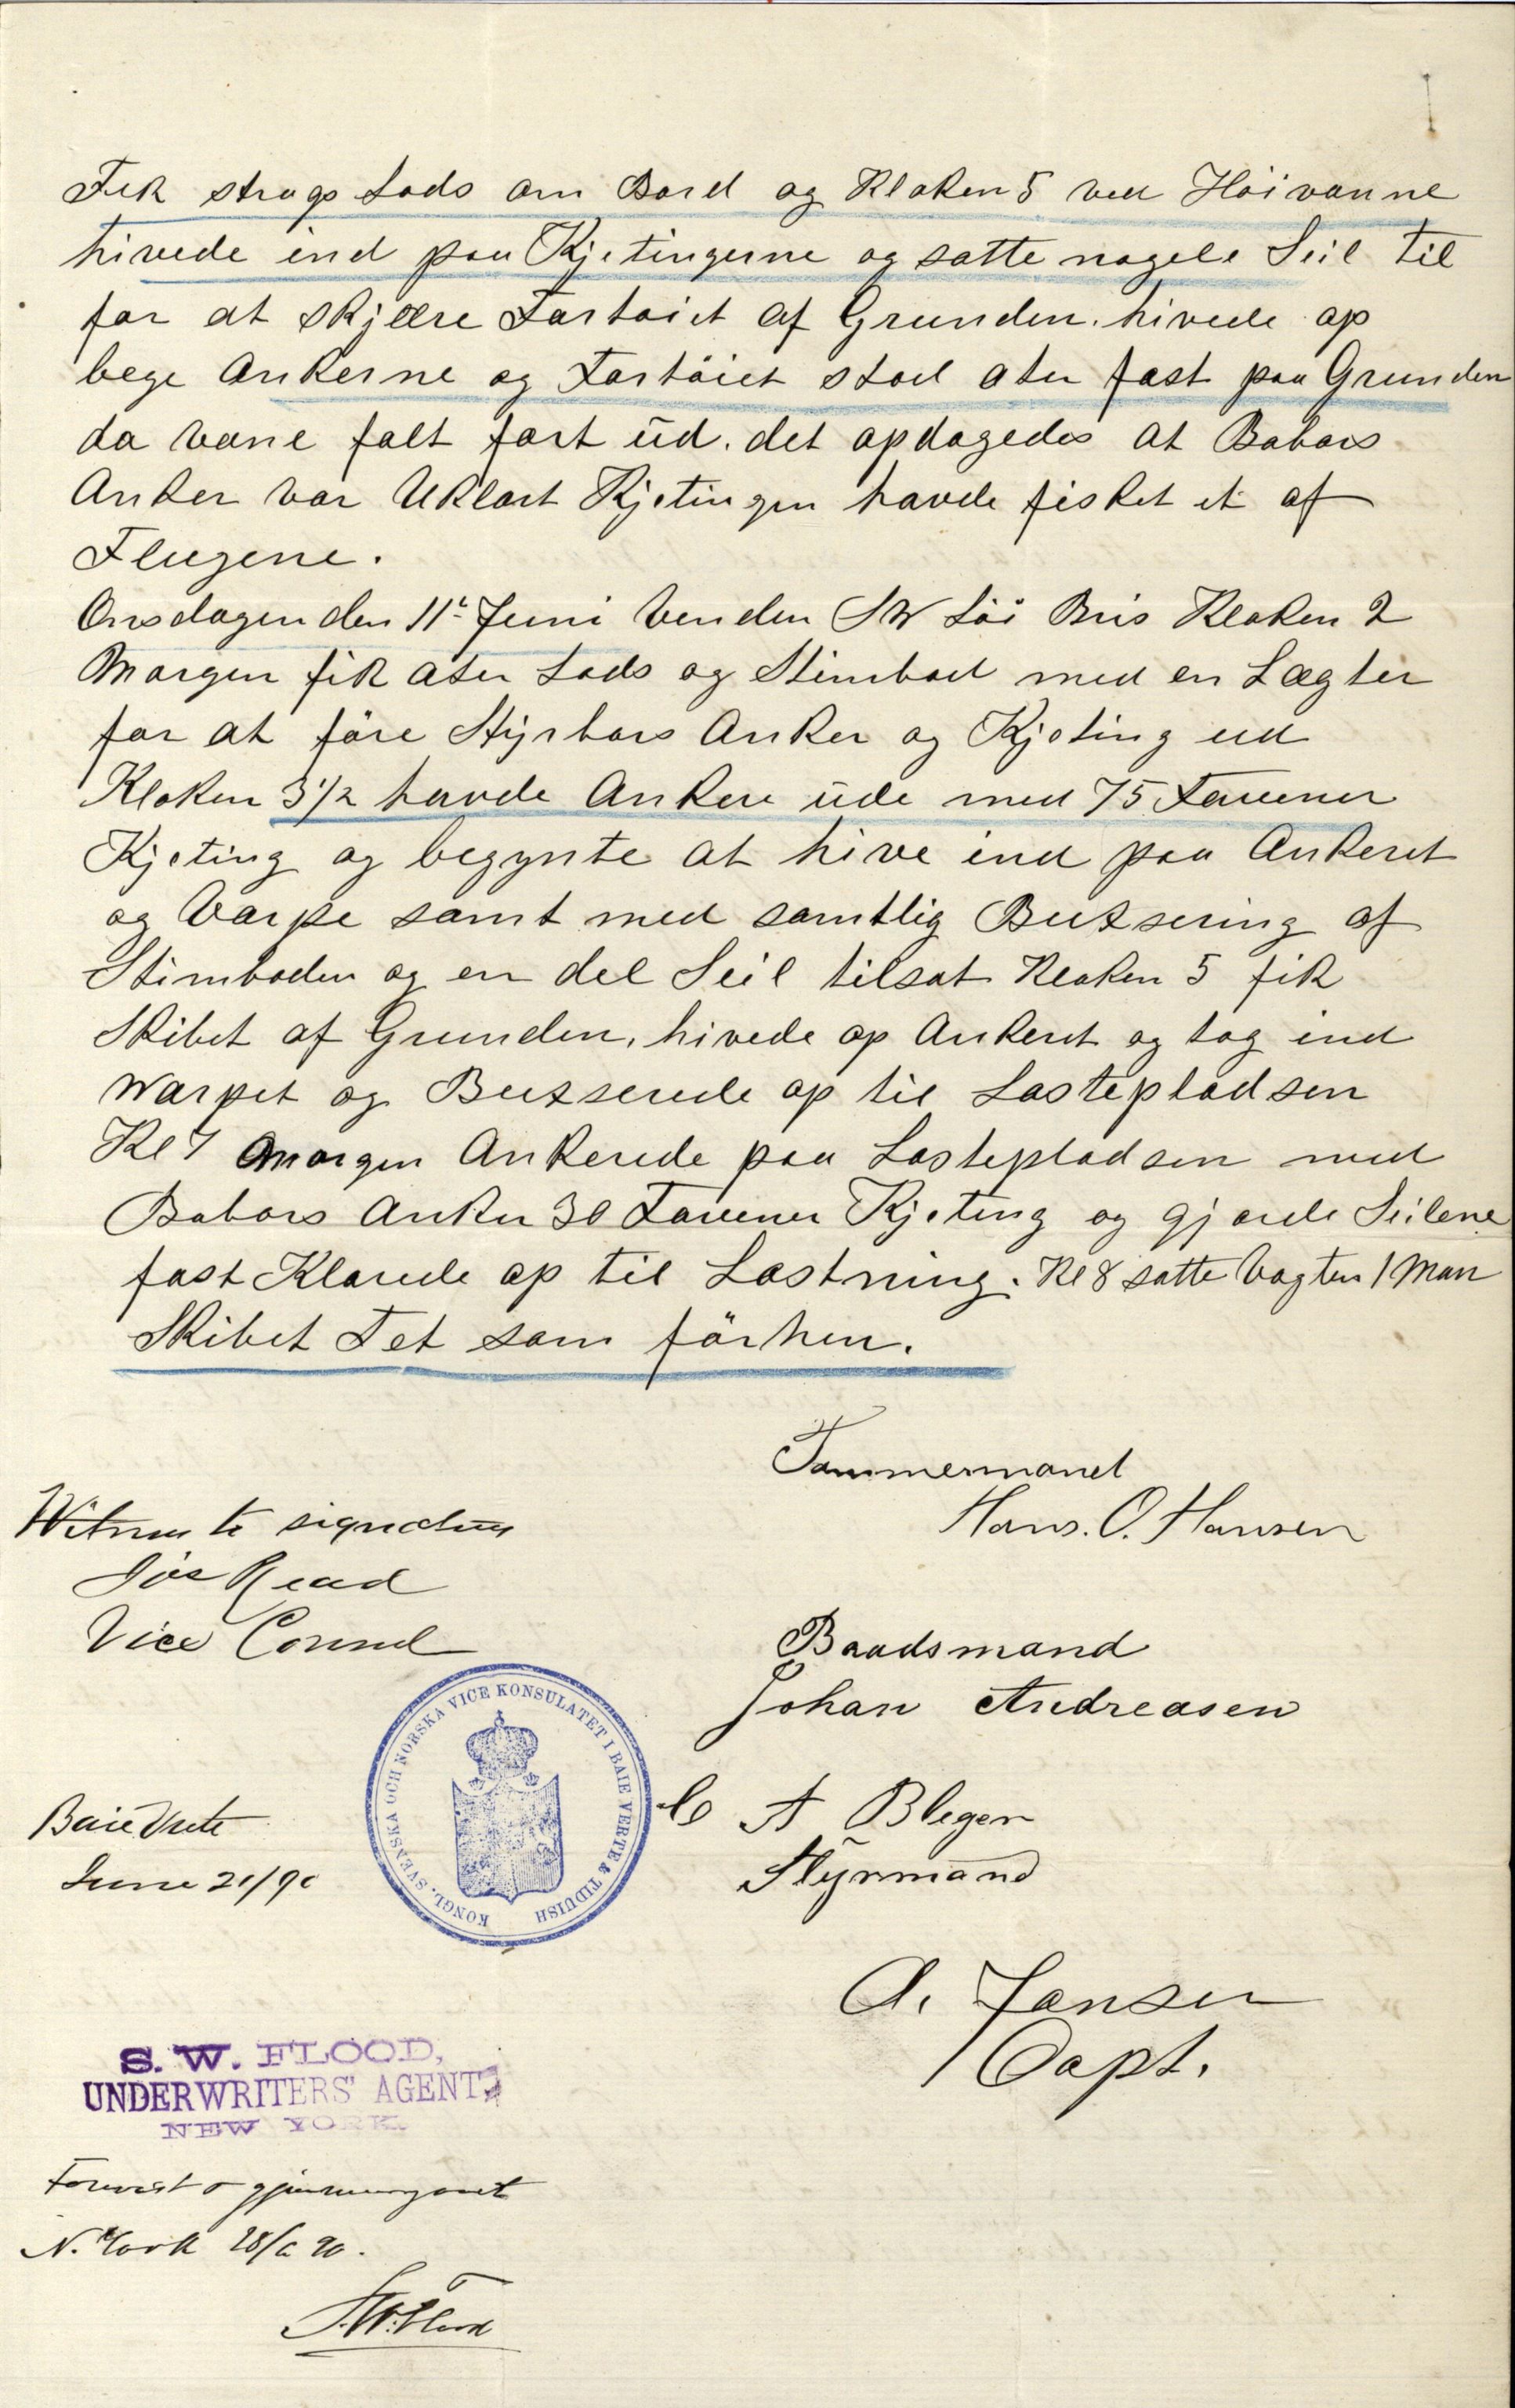 Fik strags Lods om Bord og Kloken 5 ved Höivanne
hivede ind paa Kjetingerne og satte nogele Seil til
for at skjære Fartöiet af Grunden. hivede op
bege Ankerne og Fartöiet stod ater fast paa Grunden
da vane falt fort ud. det opdagedes at Babors
Anker var Uklart Kjetingen havde fisket et af
Flugene.
Onsdagen den 11te Juni Venden SW Löi Bris Kloken 2
Morgen fik ater Lods og Stimbod med en Lægter
for at före Styrbors Anker og Kjeting ud
Kloken 3 1/2 havde Ankere ude med 75 Favener
Kjeting og begynte at hive ind paa Ankeret
og Varpe samt med samtlig Buxsering af
Stimboden og en del Seil tilsat Kloken 5 fik
Skibet af Grunden, hivede op Ankeret og tog ind
Warpet og Buxserede op til Lastepladsen
Kl 7 Morgen Ankerede paa Lastepladsen med
Babors Anker 30 Favener Kjeting og gjorde Seilene
fast Klarede op til Lastning. Kl 8 satte Vagten 1 Man
Skibet Tet som förhen.
Tømmermand
Hans. O. Hansen
Witness to signatures
Jos Read
Vice Consul
Baadsmand
Johan Andreasen
KONGL. SVENSKA OCH NORSKA VICE KONSULATET I BAIE VERTE & TIDUISH
Baie Verte
June 21/90
C A Blegen
Styrmand
A. Jansen
Capt.
S. W. FLOOD,
UNDERWRITERS' AGENT,
NEW YORK
Forevist & gjennemgaaet
N. York 28/6 90.
S.W. Flood